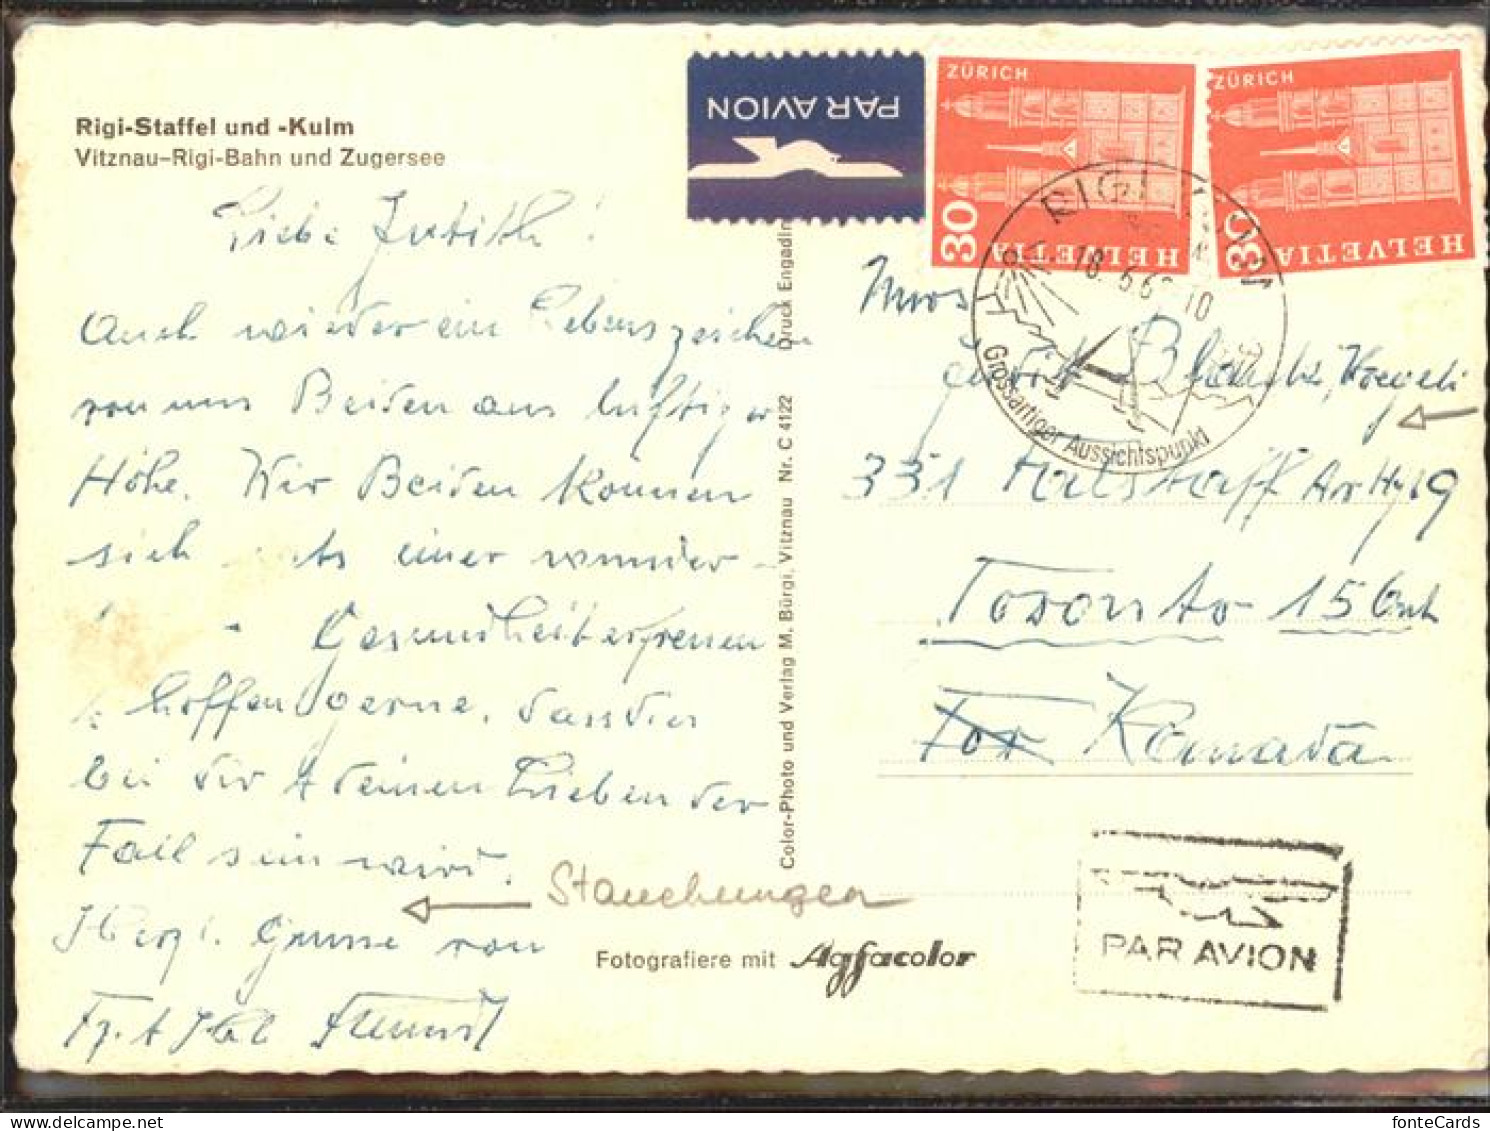 Rigi-Staffel und -Kulm
Vitznau-Rigi-Bahn und Zugersee
Liebe Judith!
Auch wieder ein Lebenszeichen
von uns Beiden aus luftiger
Höhe. Wir Beiden können
sich einer wunder-
Gesundheit erfreuen
hoffen gerne, dass dies
bei dir & deinen Lieben der
Fall sein wird.
Herzl. Grüsse von
Stauchungen
Color-Photo und Verlag M. Bürgi, Vitznau Nr. C 4122 Druck Engadin
Fotografiere mit Agfacolor
PAR AVION
ZÜRICH
30
HELVETIA
ZÜRICH
30
HELVETIA
RIGI KULM
18. 6.6 10
Grossartiger Aussichtspunkt
Mrs
Judith
331
Toronto 15 Ont
For Kanada
PAR AVION
fonteCards